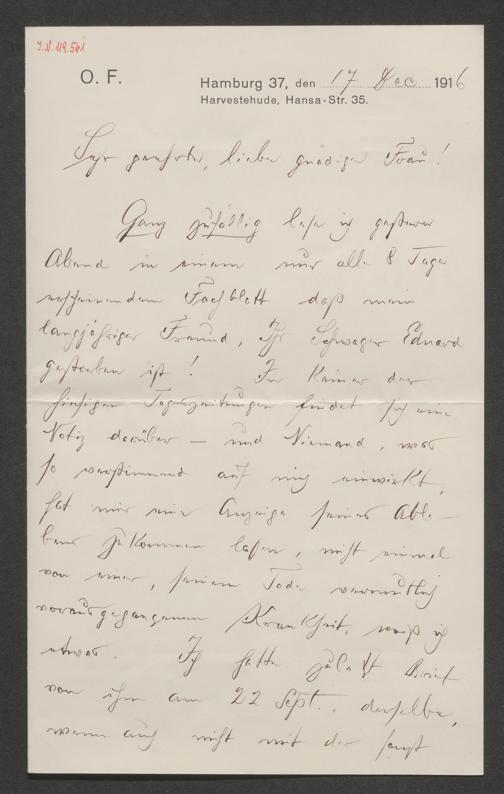 I.N. 119.561
O. F.
Hamburg 37, den 17 Dec 1916
Harvestehude, Hansa-Str. 35.
Sehr geehrte, liebe gnädige Frau!
Ganz zufällig lese ich gestern
Abend in einem nur alle 8 Tage
erscheinendem Fachblatt daß mein
langjähriger Freund, Ihr Schwager Eduard
gestorben ist! In keiner der
hiesigen Tageszeitungen findet sich eine
Notiz darüber — und Niemand, was
so verstimmend auf mich einwirkt,
hat mir eine Anzeige seines Able-
bens zukommen lassen, nicht einmal
von einer, seinem Tode vermutlich
vorausgegangenen Krankheit, weiß ich
etwas. Ich hatte zuletzt Brief
von ihm am 22 Sept., derselbe,
wenn auch nicht mit der sonst